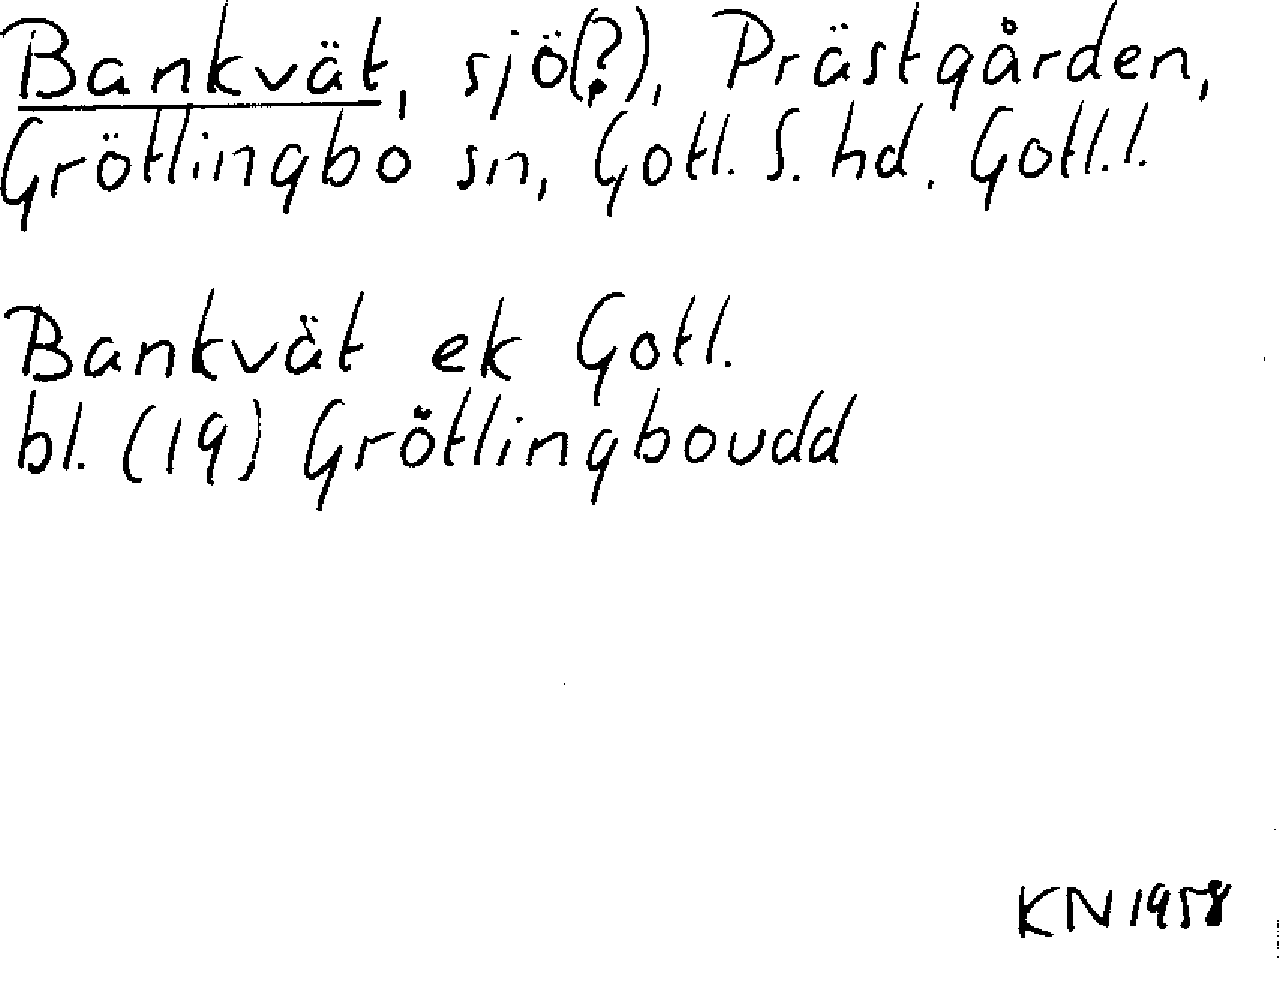 Bankvät, sjö(?), Prästgården,
Grötlingbo sn, Gotl. S. hd. Gotl. l.
Bankvät ek Gotl.
bl. (19) Grötlingboudd
KN 1958